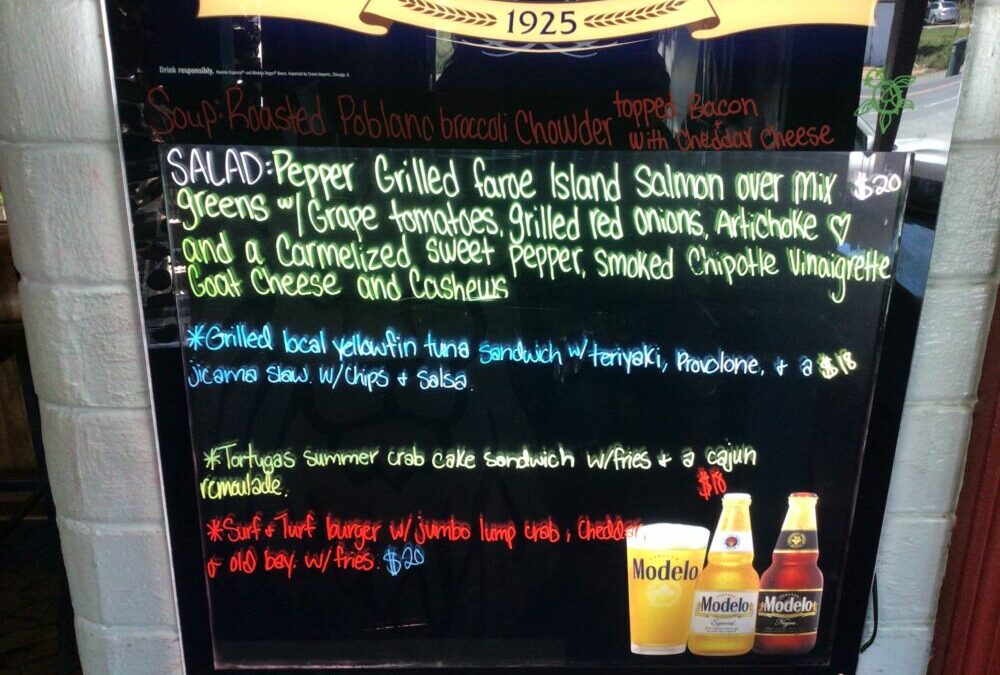 1925
Drink responsibly. Modelo Especial® and Modelo Negra® Beers. Imported by Crown Imports, Chicago, IL
Soup: Roasted Poblano broccoli Chowder topped Bacon
with Cheddar Cheese
SALAD: Pepper Grilled faroe Island Salmon over mix $20
greens w/ Grape tomatoes, grilled red onions, Artichoke ♡
and a Carmelized sweet pepper, smoked Chipotle Vinaigrette
Goat Cheese and Cashews
*Grilled local yellowfin tuna sandwich w/teriyaki, Provolone, + a $18
jicama slaw. w/chips + salsa.
*Tortugas summer crab cake sandwich w/fries + a cajun
remoulade. $18
*Surf + Turf burger w/ jumbo lump crab, cheddar,
+ old bay. w/fries. $20
Modelo
Modelo
Especial
Modelo
Negra